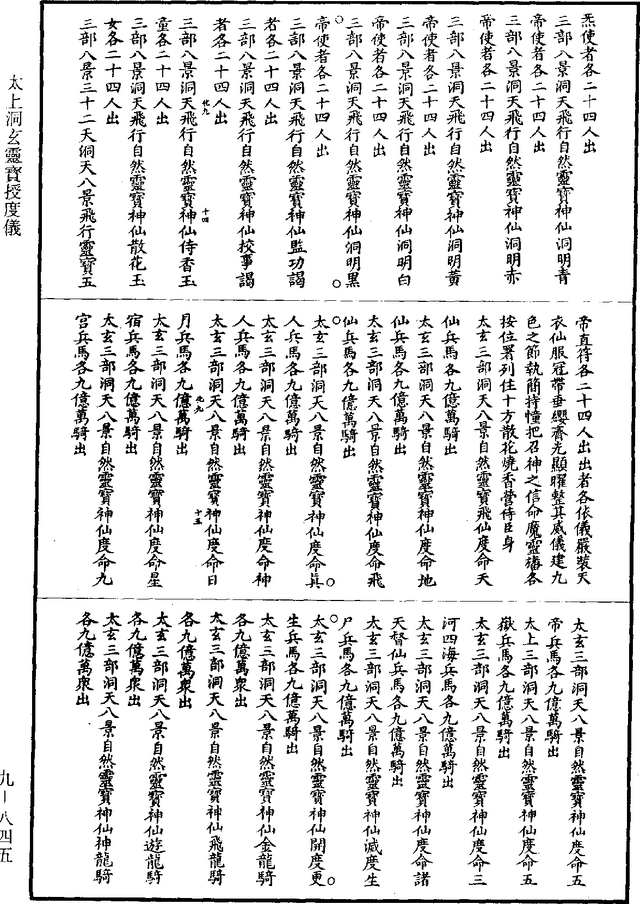 炁使者各二十四人出
三部八景洞天飛行自然靈寶神仙洞明青
帝使者各二十四人出
三部八景洞天飛行自然靈寶神仙洞明赤
帝使者各二十四人出
三部八景洞天飛行自然靈寶神仙洞明黃
帝使者各二十四人出
三部八景洞天飛行自然靈寶神仙洞明白
帝使者各二十四人出
三部八景洞天飛行自然靈寶神仙洞明黑
帝使者各二十四人出
三部八景洞天飛行自然靈寶神仙監功謁
者各二十四人出
三部八景洞天飛行自然靈寶神仙挍事謁
者各二十四人出
三部八景洞天飛行自然靈寶神仙侍香玉
童各二十四人出
三部八景洞天飛行自然靈寶神仙散花玉
女各二十四人出
三部八景三十二天洞天八景飛行靈寶五
帝直符各二十四人出出者各依儀嚴裝天
衣仙服冠帶垂纓齎光顯曜整其威儀建九
色之節執簡持幢把召神之信命魔靈旛各
按位署列住十方散花燒香營侍臣身
太玄三部洞天八景自然靈寶飛仙度命天
仙兵馬各九億萬騎出
太玄三部洞天八景自然靈寶神仙度命地
仙兵馬各九億萬騎出
太玄三部洞天八景自然靈寶神仙度命飛
仙兵馬各九億萬騎出
太玄三部洞天八景自然靈寶神仙度命眞
人兵馬各九億萬騎出
太玄三部洞天八景自然靈寶神仙度命神
人兵馬各九億萬騎出
太玄三部洞天八景自然靈寶神仙度命日
月兵馬各九億萬騎出
太玄三部洞天八景自然靈寶神仙度命星
宿兵馬各九億萬騎出
太玄三部洞天八景自然靈寶神仙度命九
宮兵馬各九億萬騎出
太玄三部洞天八景自然靈寶神仙度命五
帝兵馬各九億萬騎出
太上三部洞天八景自然靈寶神仙度命五
嶽兵馬各九億萬騎出
太玄三部洞天八景自然靈寶神仙度命三
河四海兵馬各九億萬騎出
太玄三部洞天八景自然靈寶神仙度命諸
天督仙兵馬各九億萬騎出
太玄三部洞天八景自然靈寶神仙滅度生
尸兵馬各九億萬騎出
太玄三部洞天八景自然靈寶神仙開度更
生兵馬各九億萬騎出
太玄三部洞天八景自然靈寶神仙金龍騎
各九億萬衆出
太玄三部洞天八景自然靈寶神仙飛龍騎
各九億萬衆出
太玄三部洞天八景自然靈寶神仙遊龍騎
各九億萬衆出
太玄三部洞天八景自然靈寶神仙神龍騎
各九億萬衆出
太上洞玄靈寶授度儀
九－八四五